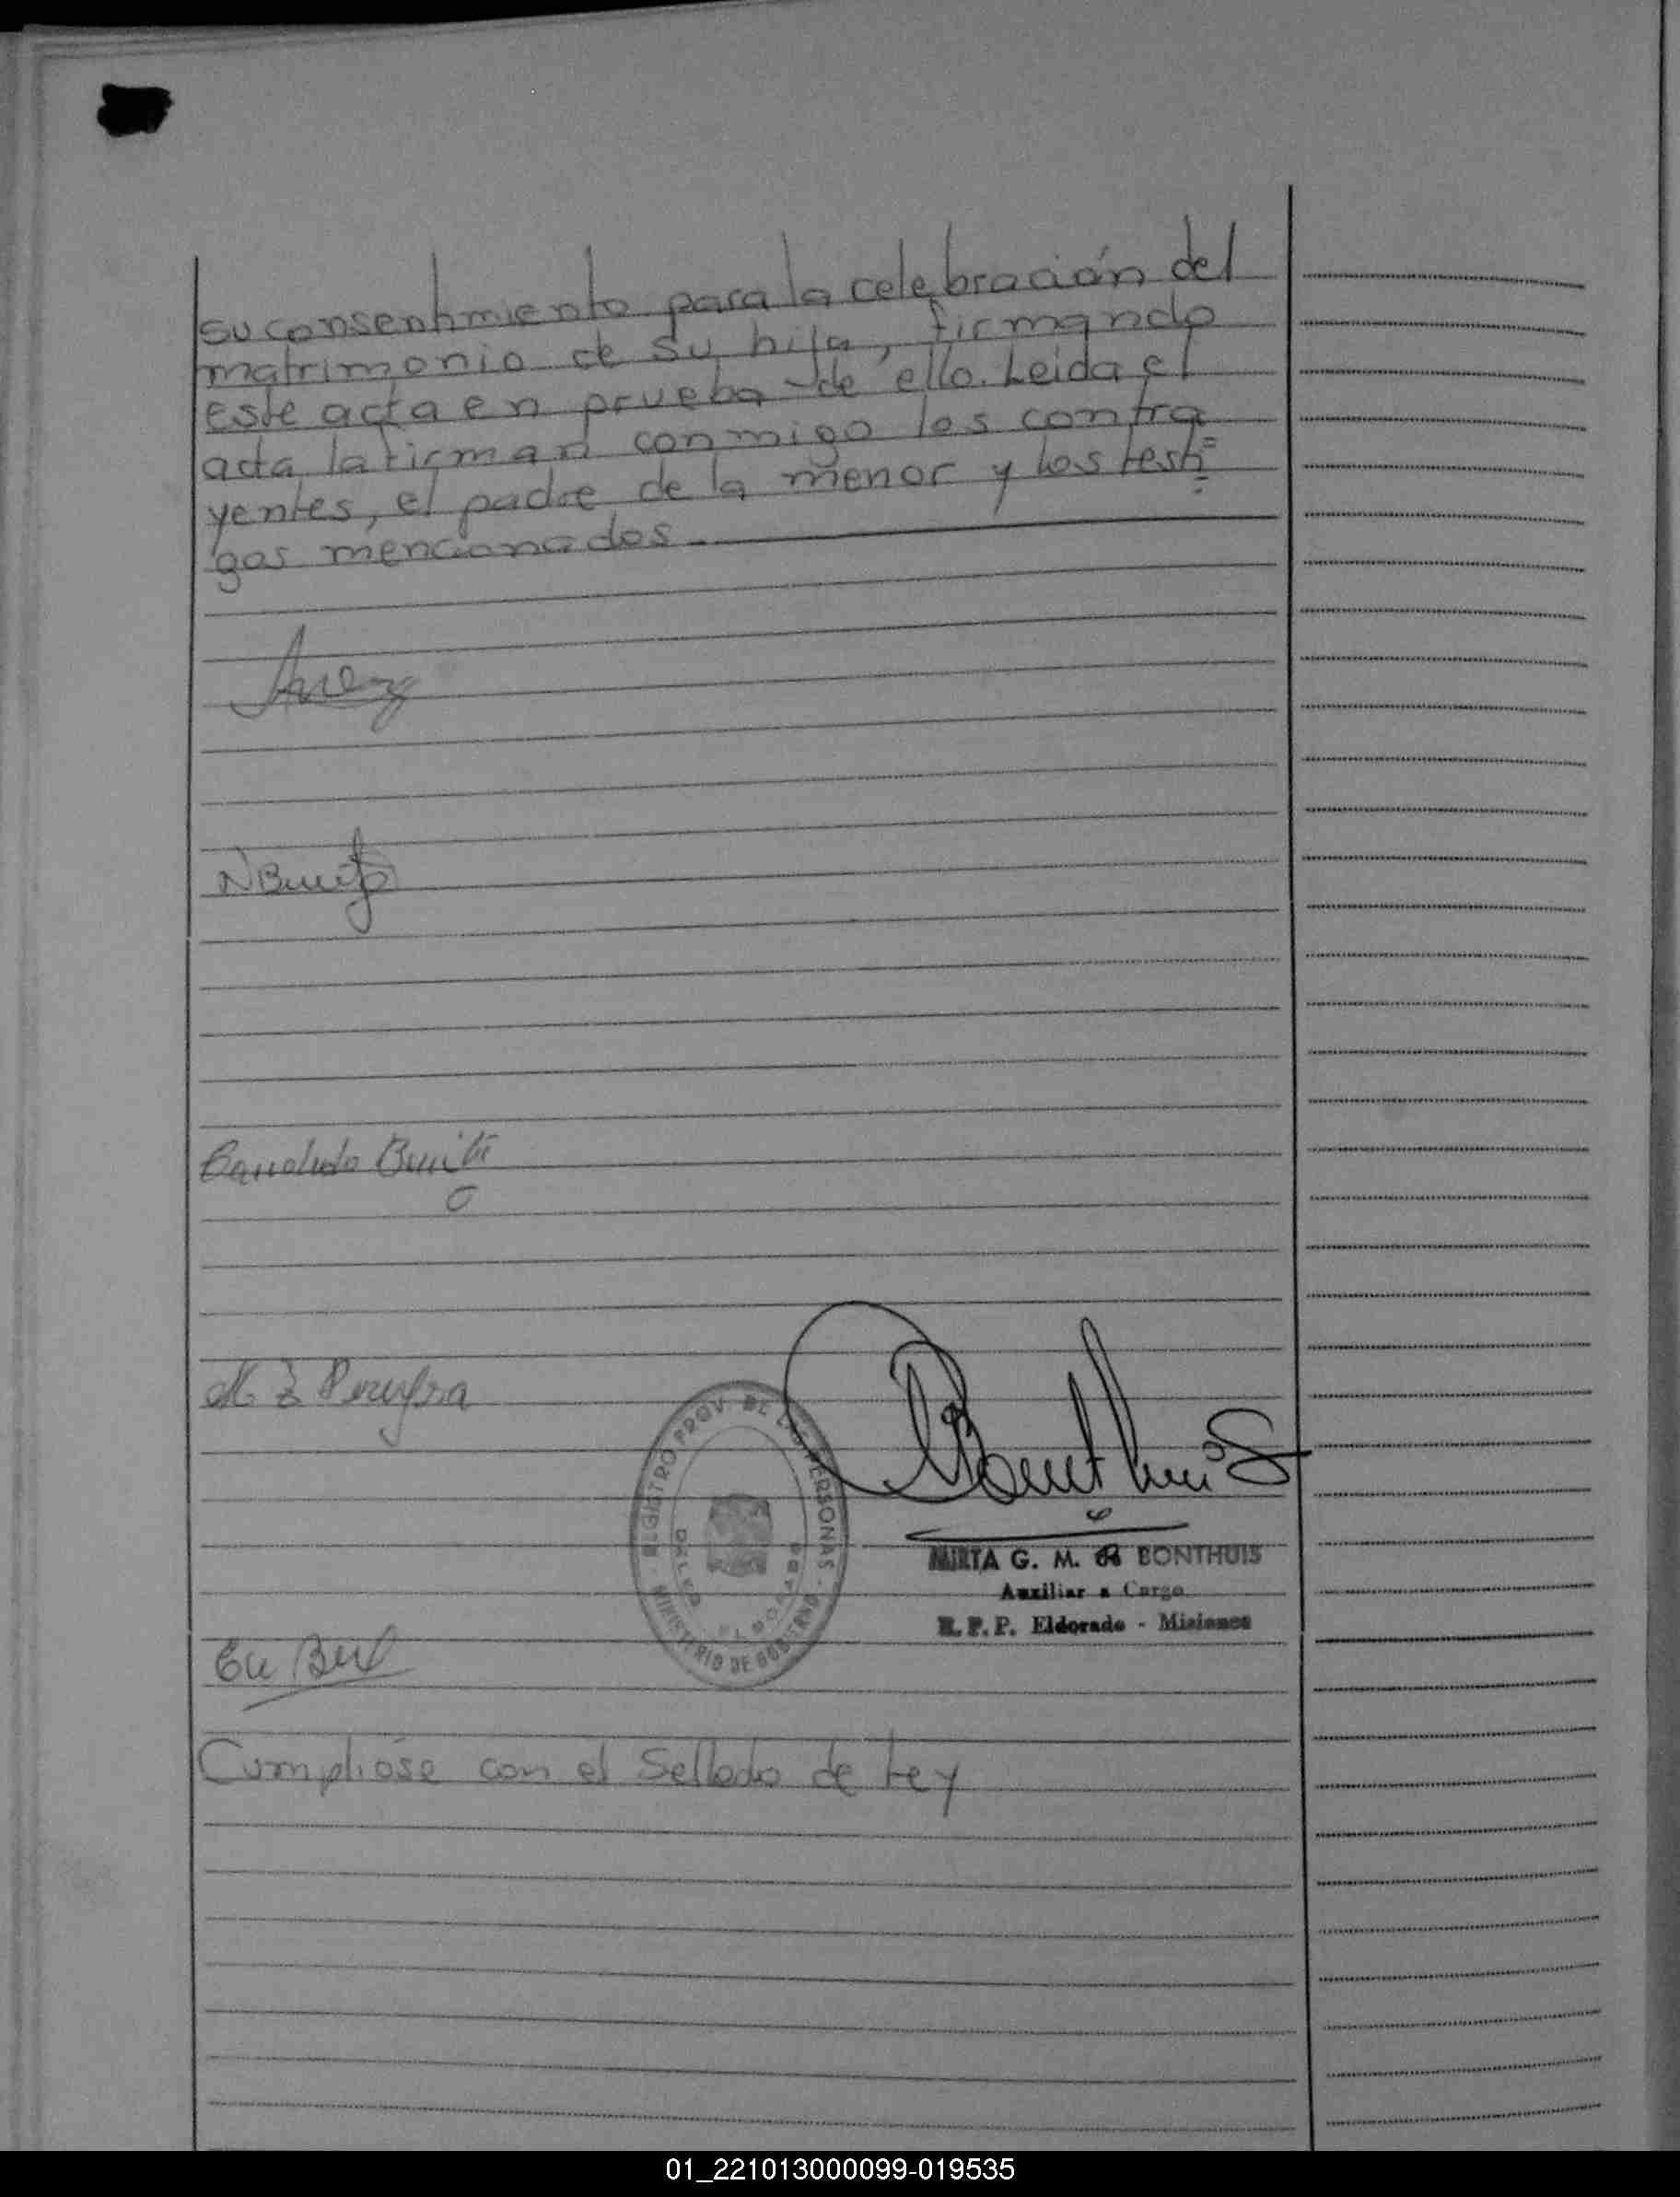 su consentimiento para la celebración del
matrimonio de su hija, firmando
este acta en prueba de ello. Leida el
acta, la firman conmigo los contra
yentes, el padre de la menor y los testi=
gos mencionados.-
NBenitez
Candido Benitez
M. Z Pereyra
REGISTRO PROV. DE LAS PERSONAS
MINISTERIO DE GOBIERNO
ELDORADO
Bonthuis
MIRTA G. M. de BONTHUIS
Auxiliar a Cargo
R.P.P. Eldorado - Misiones
Cumplióse con el Sellado de Ley
01_221013000099-019535